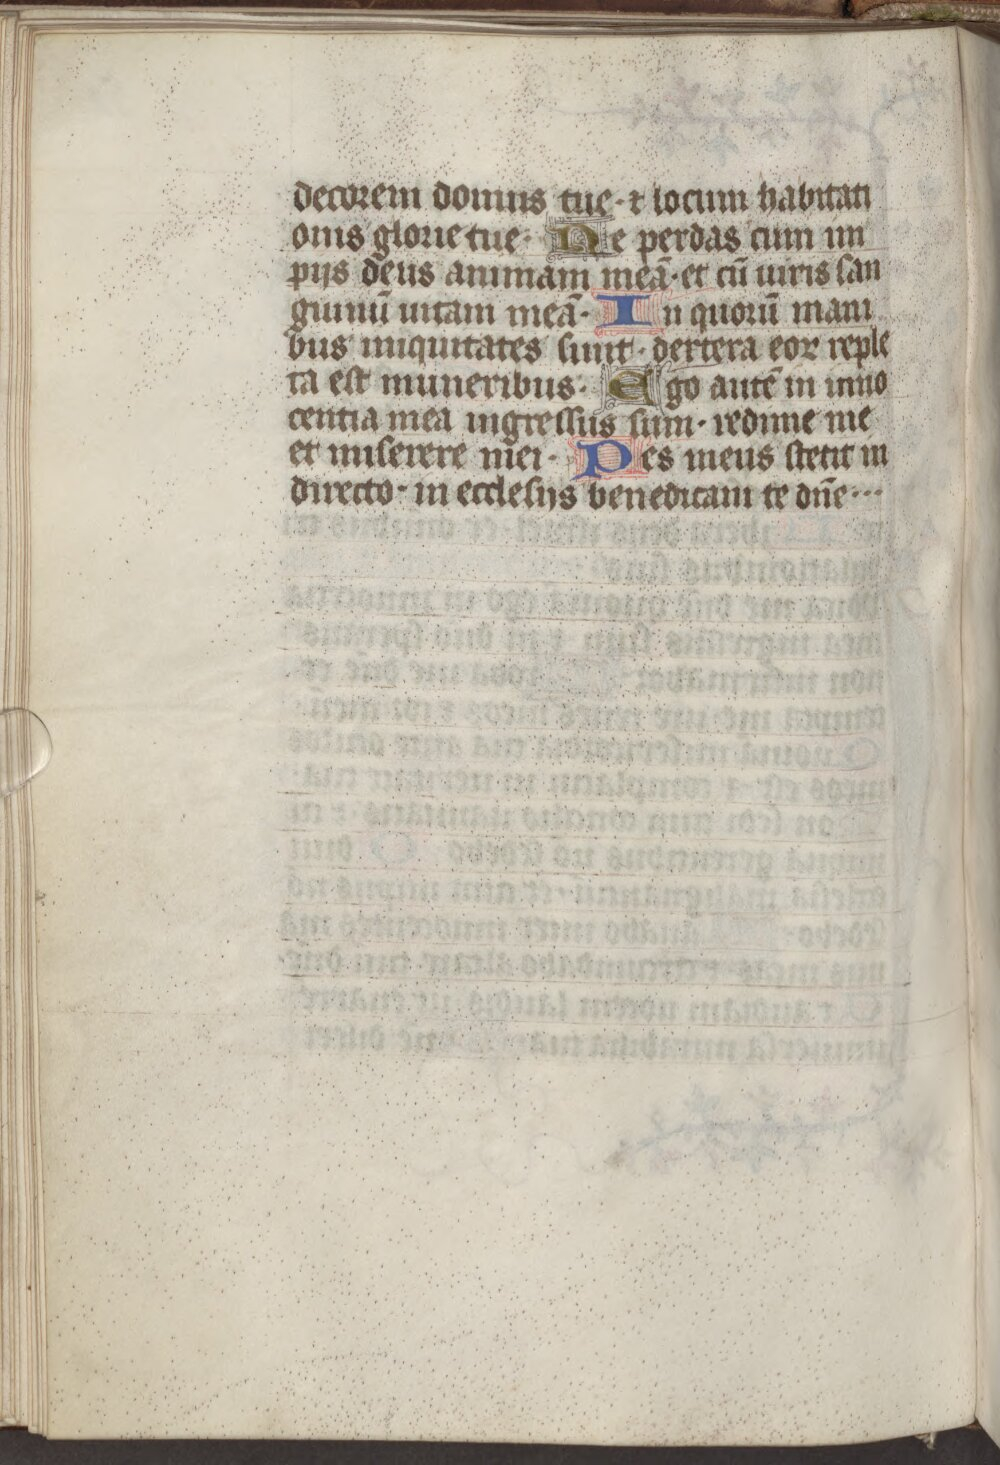 decorem domus tue · ⁊ locum habitati
onis glorie tue · Ne perdas cum im
pijs deus animam meā · et cū uiris san
guinū uitam meā · In quorū mani
bus iniquitates sunt · dextera eoꝝ reple
ta est muneribus · Ego autē in inno
centia mea ingressus sum · redime me
et miserere mei · Pes meus stetit in
directo · in ecclesijs benedicam te dn̄e ···